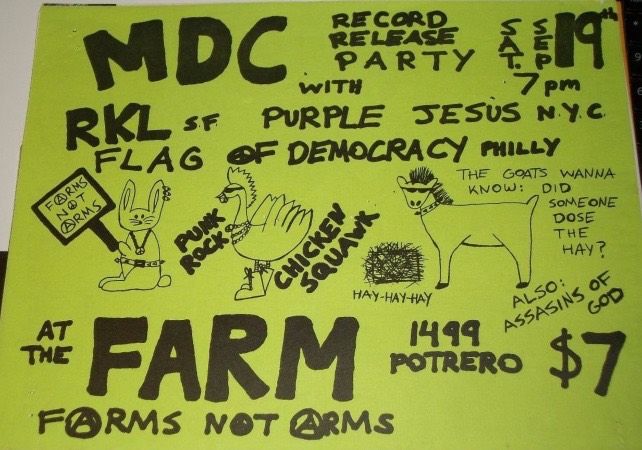 MDC
RECORD
RELEASE
PARTY
SAT.
SEP
19th
WITH
7 pm
RKL S.F.
PURPLE JESUS N.Y.C.
FLAG OF DEMOCRACY PHILLY
FARMS
NOT
ARMS
PUNK
ROCK
CHICKEN
SQUAWK
THE GOATS WANNA
KNOW: DID
SOMEONE
DOSE
THE
HAY?
HAY-HAY-HAY
ALSO:
ASSASINS OF
GOD
AT
THE
FARM
1499
POTRERO
$7
FARMS NOT ARMS